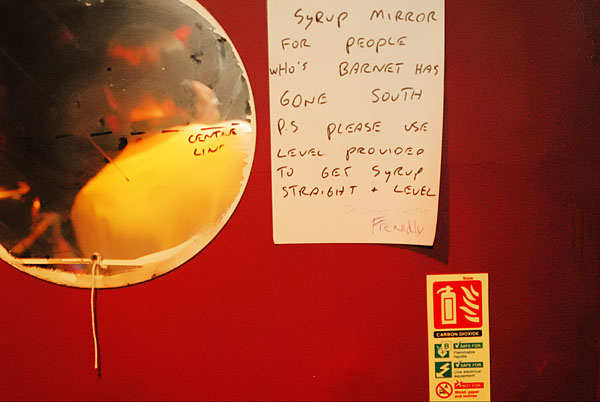 CENTRE
LINE
SYRUP MIRROR
FOR PEOPLE
WHO'S BARNET HAS
GONE SOUTH
P.S PLEASE USE
LEVEL PROVIDED
TO GET SYRUP
STRAIGHT + LEVEL
Friendly
CARBON DIOXIDE
B
SAFE FOR
Flammable
liquids
SAFE FOR
Live electrical
equipment
NOT FOR
Wood, paper
and textiles